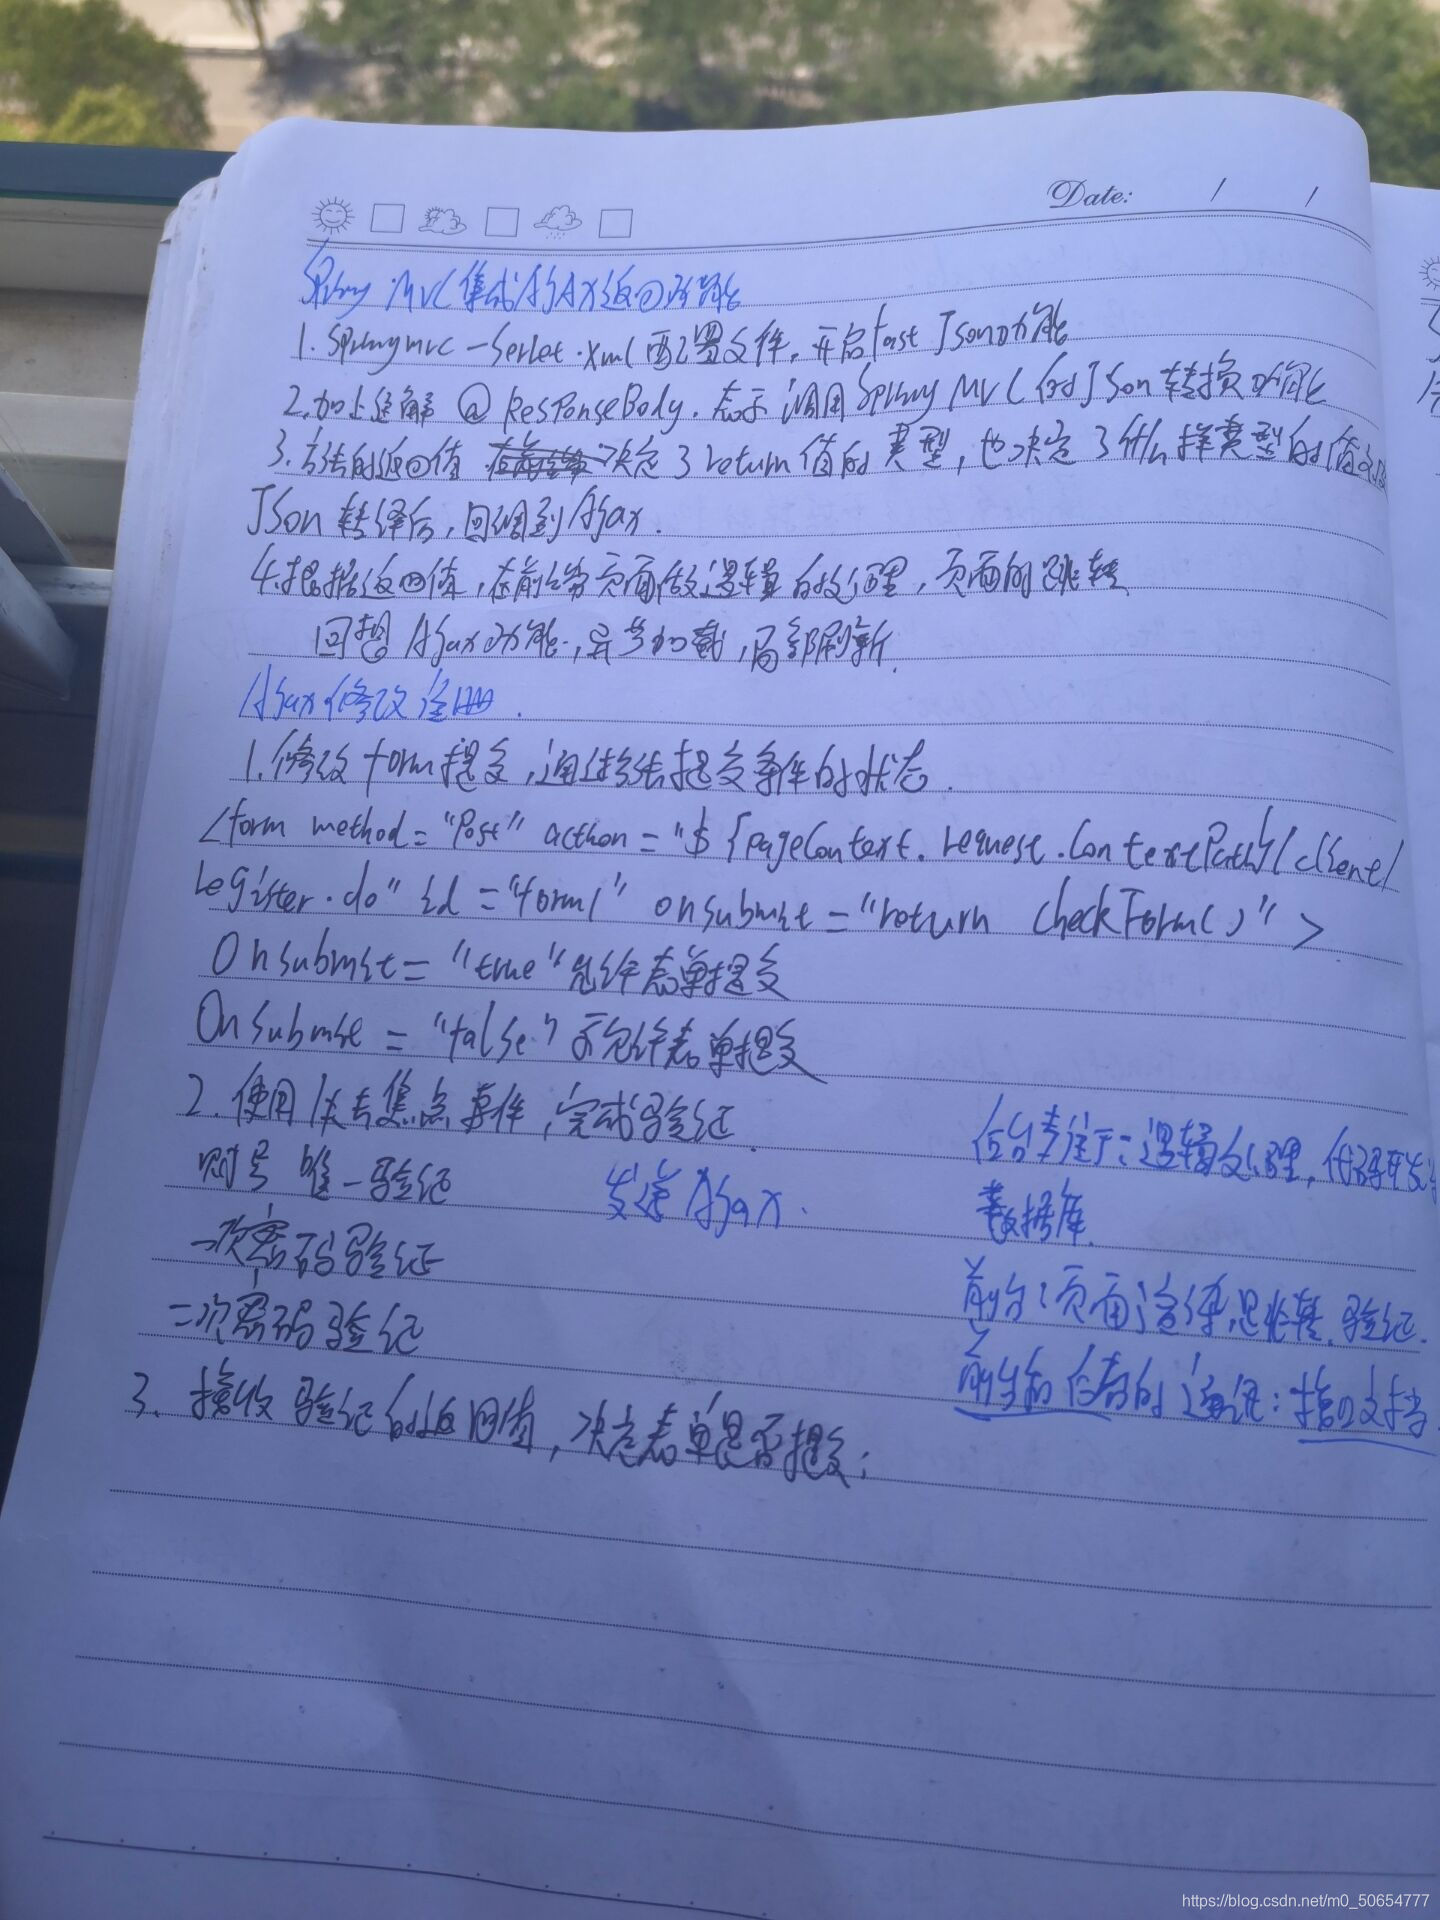 Date: / /
Spring MVC集成Ajax返回功能
1. Springmvc-servlet.xml 配置文件,开启fast Json功能
2.加上注解 @ ResponseBody.表示调用Spring MVC的Json转换功能
3.方法的返回值 决定了return值的类型,也决定了什么样类型的值
Json转译后,回调到Ajax.
4.根据返回值,在前端页面做逻辑的处理,页面的跳转
回想Ajax功能,异步加载,局部刷新.
Ajax修改注册.
1.修改form提交,通过方法提交条件的状态.
<form method="Post" action="${pageContext.request.ContextPath}/client/
register.do" id="form1" onsubmit="return checkForm()">
Onsubmit="true"允许表单提交
Onsubmit="false"不允许表单提交
2.使用失去焦点事件,完成验证.
账号唯一验证 发送Ajax.
一次密码验证
二次密码验证
3.接收验证的返回值,决定表单是否提交;
后台专注于:逻辑处理,代码开发
数据库.
前台:页面渲染,跳转.验证.
前台和后台的通讯:接口文档
https://blog.csdn.net/m0_50654777